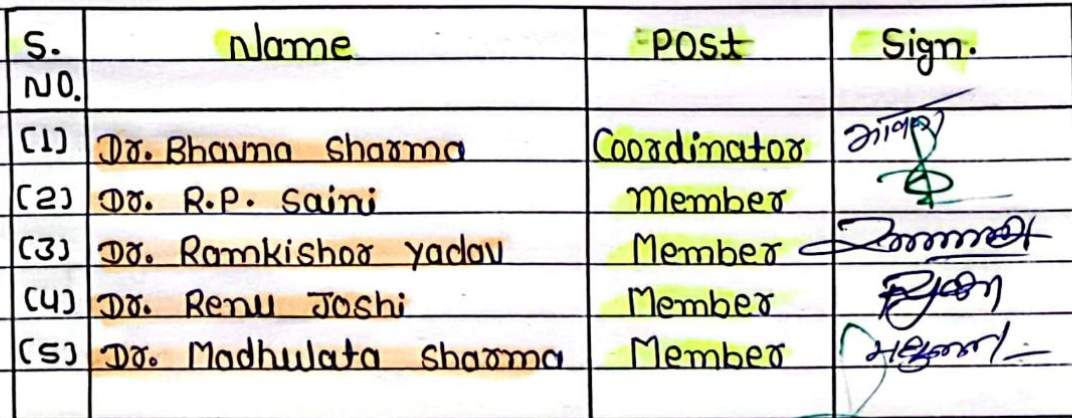 S. NO. Name Post Sign.
(1) Dr. Bhavna Sharma Coordinator
(2) Dr. R.P. Saini Member
(3) Dr. Ramkishor Yadav Member
(4) Dr. Renu Joshi Member
(5) Dr. Madhulata Sharma Member